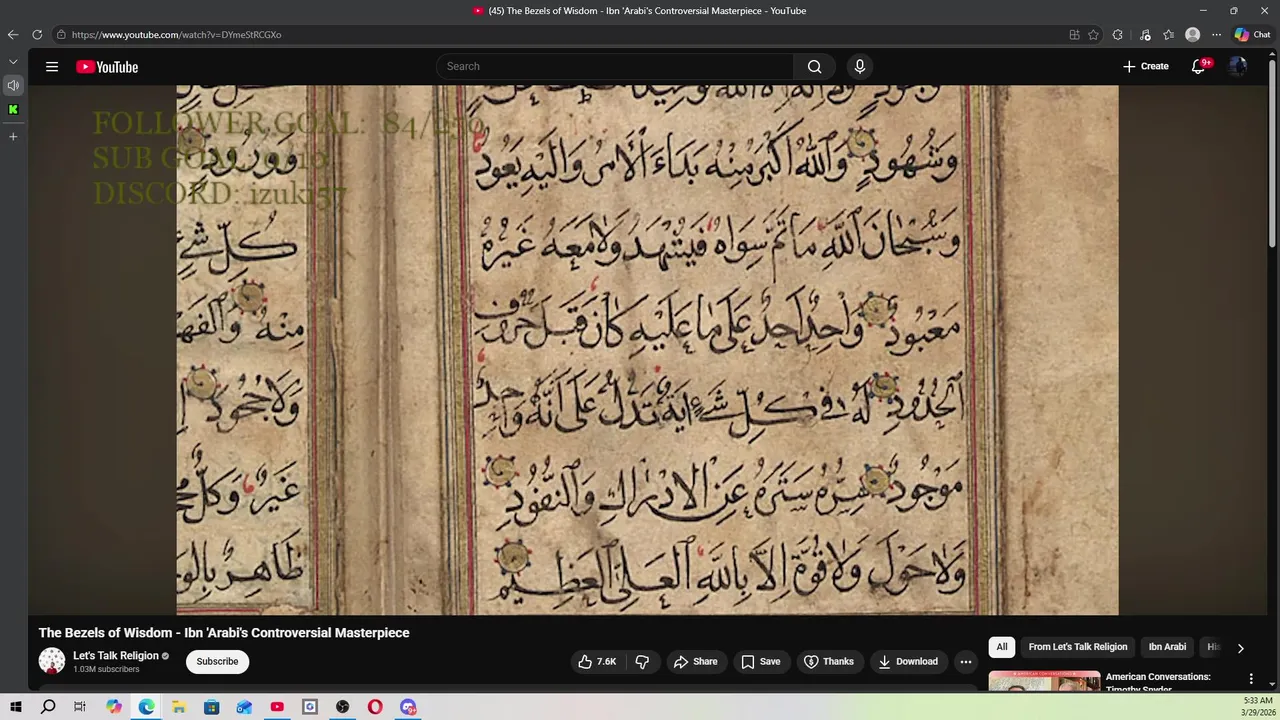 (45) The Bezels of Wisdom - Ibn 'Arabi's Controversial Masterpiece - YouTube
https://www.youtube.com/watch?v=DYmeStRCGXo
Chat
YouTube
Search
Create
9+
FOLLOWER GOAL: 84/250
SUB GOAL
DISCORD: izuki57
وَشُهُودٍ وَاللهُ اَكْبَرُ مِنْهُ بَدَاءَ الْاَمْرُ وَاِلَيْهِ يَعُودُ
وَسُبْحَانَ اللهِ مَا ثَمَّ سِوَاهُ فَيُشْهَدُ وَلَا مَعَهُ غَيْرُهُ
مَعْبُودٌ وَاحِدٌ اَحَدٌ عَلَى مَا عَلَيْهِ كَانَ قَبْلَ حُرُوفِ
الْحُدُودِ لَهُ فِي كُلِّ شَيْءٍ اٰيَةٌ تَدُلُّ عَلَى اَنَّهُ وَاحِدٌ
مَوْجُودٌ سِرُّهُ سَتَرَهُ عَنِ الْاِدْرَاكِ وَالنُّفُوذِ
وَلَا حَوْلَ وَلَا قُوَّةَ اِلَّا بِاللهِ الْعَلِيِّ الْعَظِيمِ
كُلِّ شَيْءٍ
مِنْهُ
غَيْرُ وَكُلُّ
ظَاهِرٌ
The Bezels of Wisdom - Ibn 'Arabi's Controversial Masterpiece
Let's Talk Religion
1.03M subscribers
Subscribe
7.6K
Share
Save
Thanks
Download
All
From Let's Talk Religion
Ibn Arabi
American Conversations:
Timothy Snyder
5:33 AM
3/29/2026